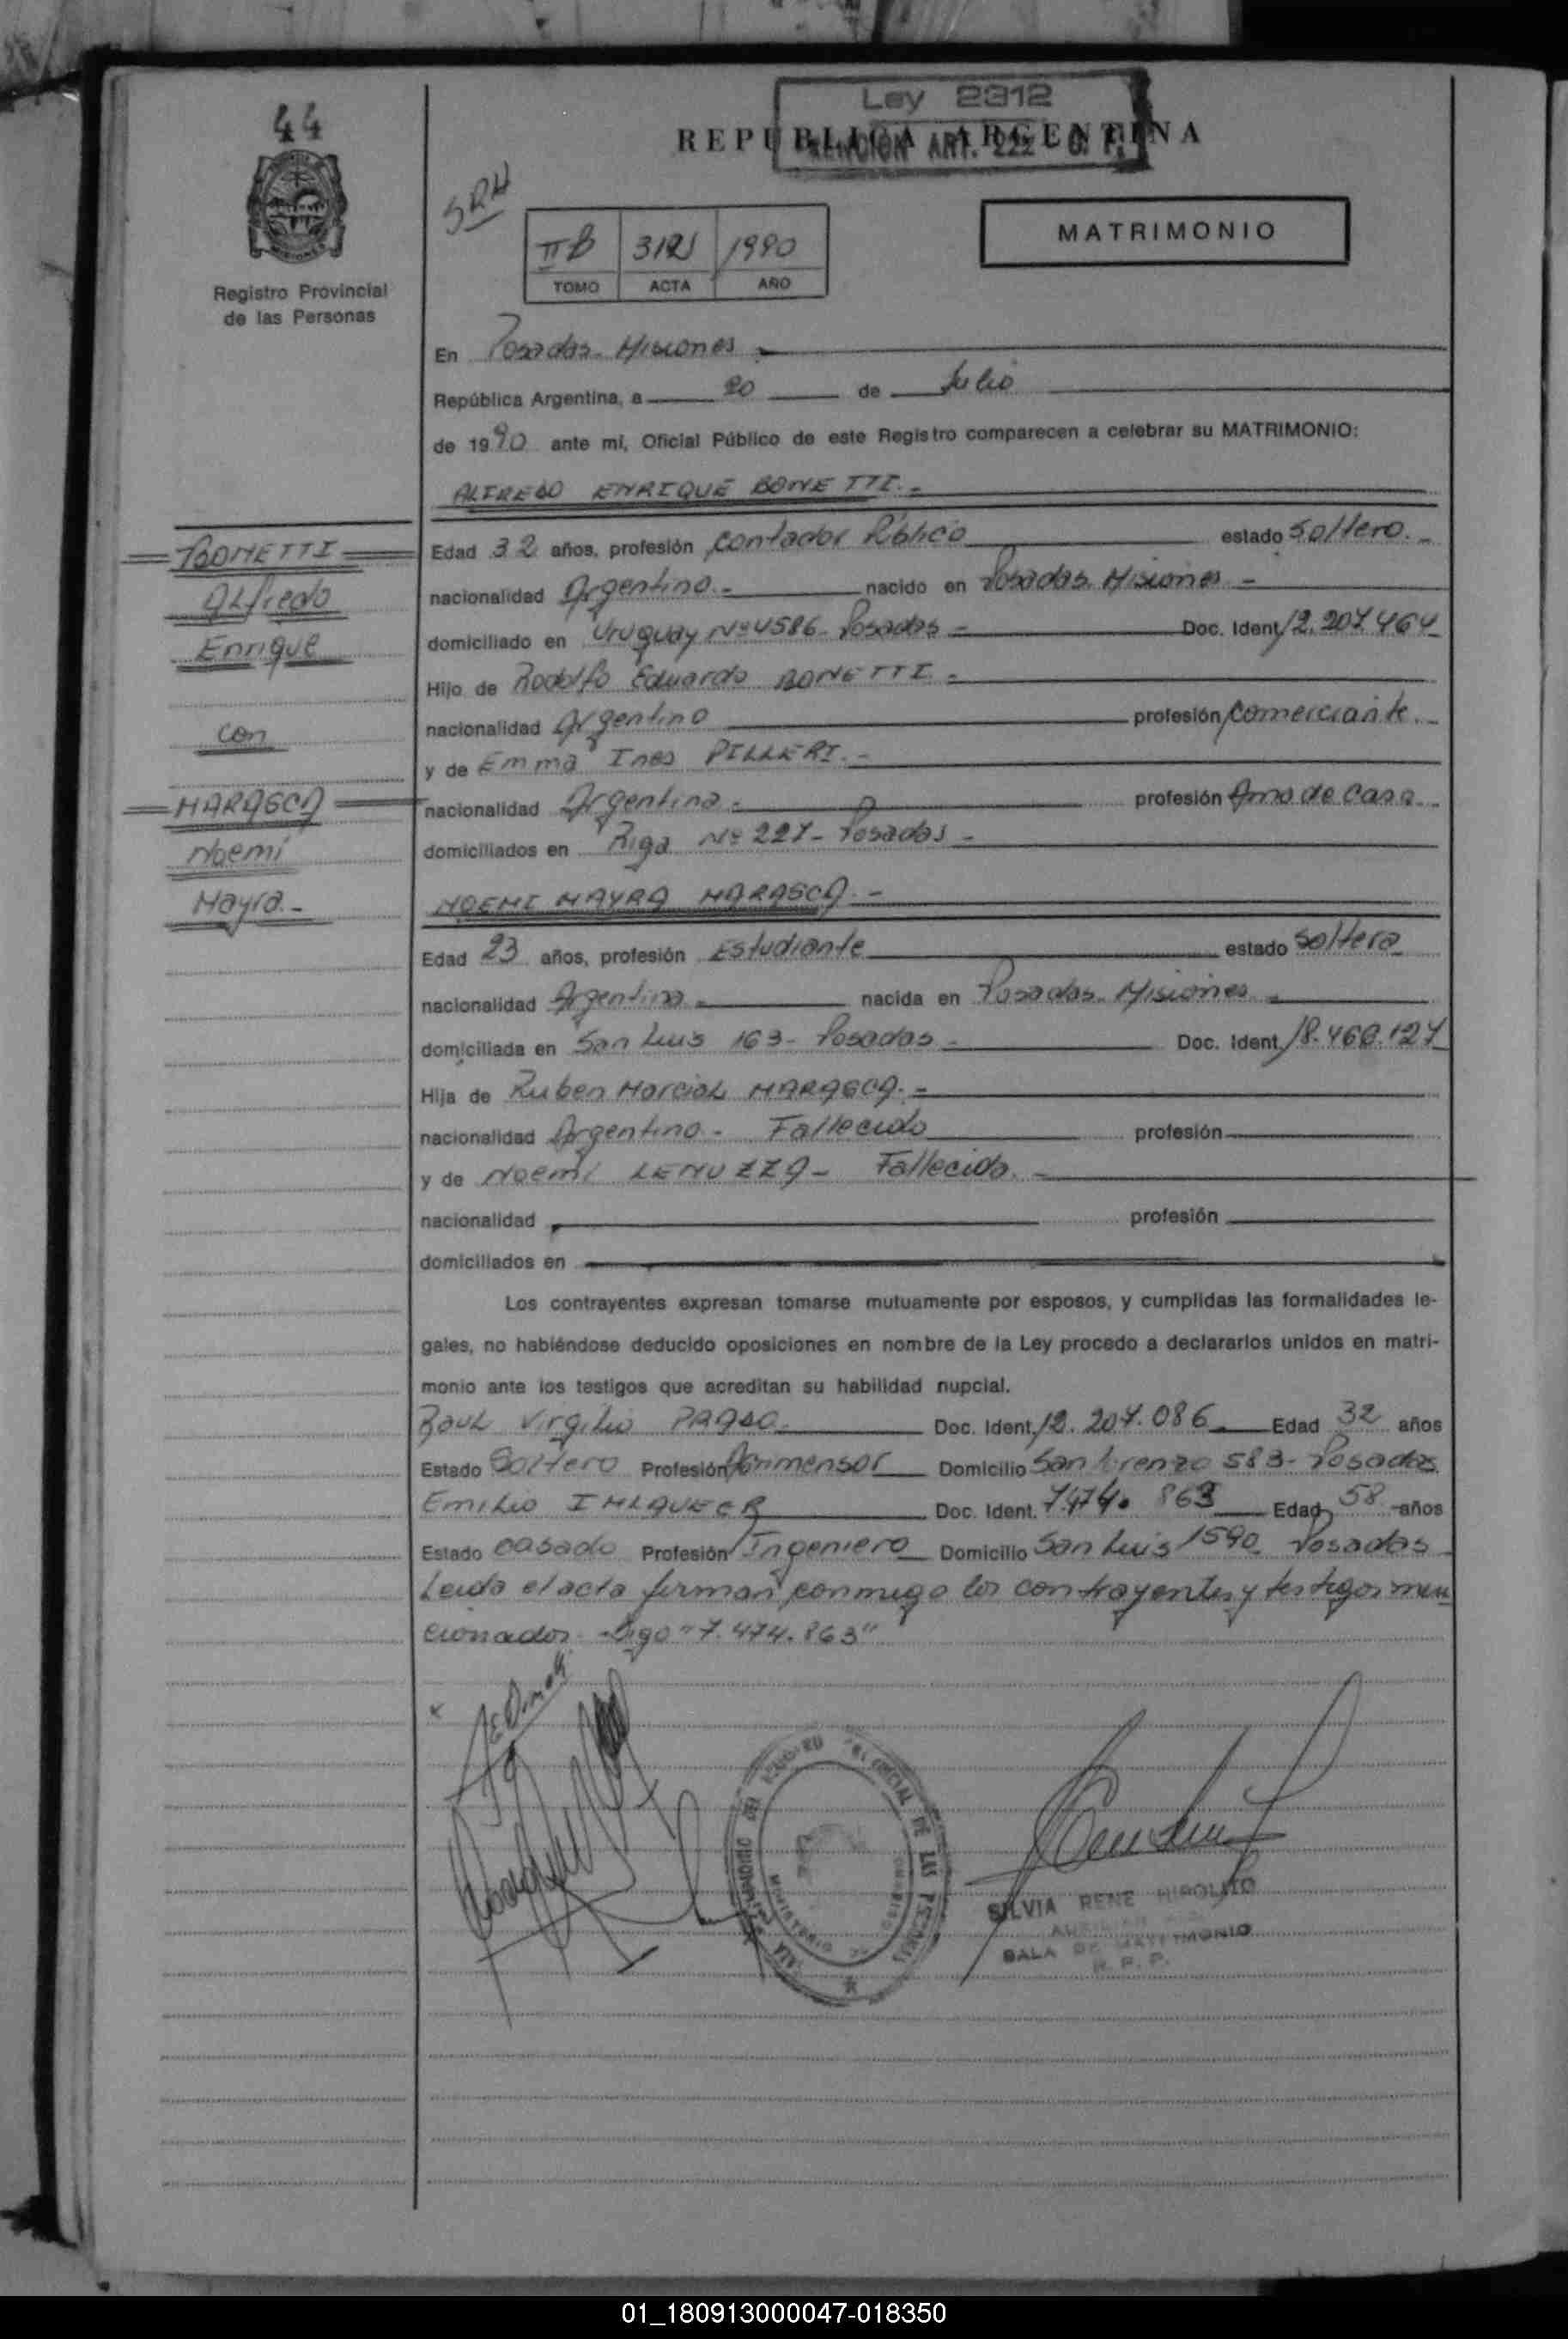 44
Ley 2312
REPUBLICA ARGENTINA
ART. 222
SRH
II B 312 1990
TOMO ACTA AÑO
MATRIMONIO
Registro Provincial
de las Personas
En Posadas - Misiones -
República Argentina, a 20 de Julio
de 1990 ante mí, Oficial Público de este Registro comparecen a celebrar su MATRIMONIO:
ALFREDO ENRIQUE BONETTI.-
BONETTI
Alfredo
Enrique
con
MARASCA
Noemi
Mayra.-
Edad 32 años, profesión contador Público estado Soltero.-
nacionalidad Argentino.- nacido en Posadas Misiones -
domiciliado en Uruguay Nº 4586 - Posadas - Doc. Ident. 12.207.464
Hijo de Rodolfo Eduardo BONETTI.-
nacionalidad Argentino profesión comerciante.-
y de Emma Ines PILLERI.-
nacionalidad Argentina.- profesión Ama de casa
domiciliados en Riga Nº 227 - Posadas -
NOEMI MAYRA MARASCA.-
Edad 23 años, profesión Estudiante estado Soltera
nacionalidad Argentina - nacida en Posadas - Misiones -
domiciliada en San Luis 163 - Posadas - Doc. Ident. 18.460.127
Hija de Ruben Marcial MARASCA.-
nacionalidad Argentino - Fallecido profesión
y de Noemi LENUZZA - Fallecida.-
nacionalidad profesión
domiciliados en
Los contrayentes expresan tomarse mutuamente por esposos, y cumplidas las formalidades le-
gales, no habiéndose deducido oposiciones en nombre de la Ley procedo a declararlos unidos en matri-
monio ante los testigos que acreditan su habilidad nupcial.
Raul Virgilio Doc. Ident. 12.207.086 Edad 32 años
Estado Soltero Profesión Agrimensor Domicilio San Lorenzo 583 - Posadas
Emilio Doc. Ident. 7.474.863 Edad 58 años
Estado casado Profesión Ingeniero Domicilio San Luis 1590 Posadas
Leida el acta firman conmigo los contrayentes y testigos men
cionados - Digo "7.474.863"
SILVIA RENE HIPOLITO
SALA DE MATRIMONIO
R. P. P.
01_180913000047-018350